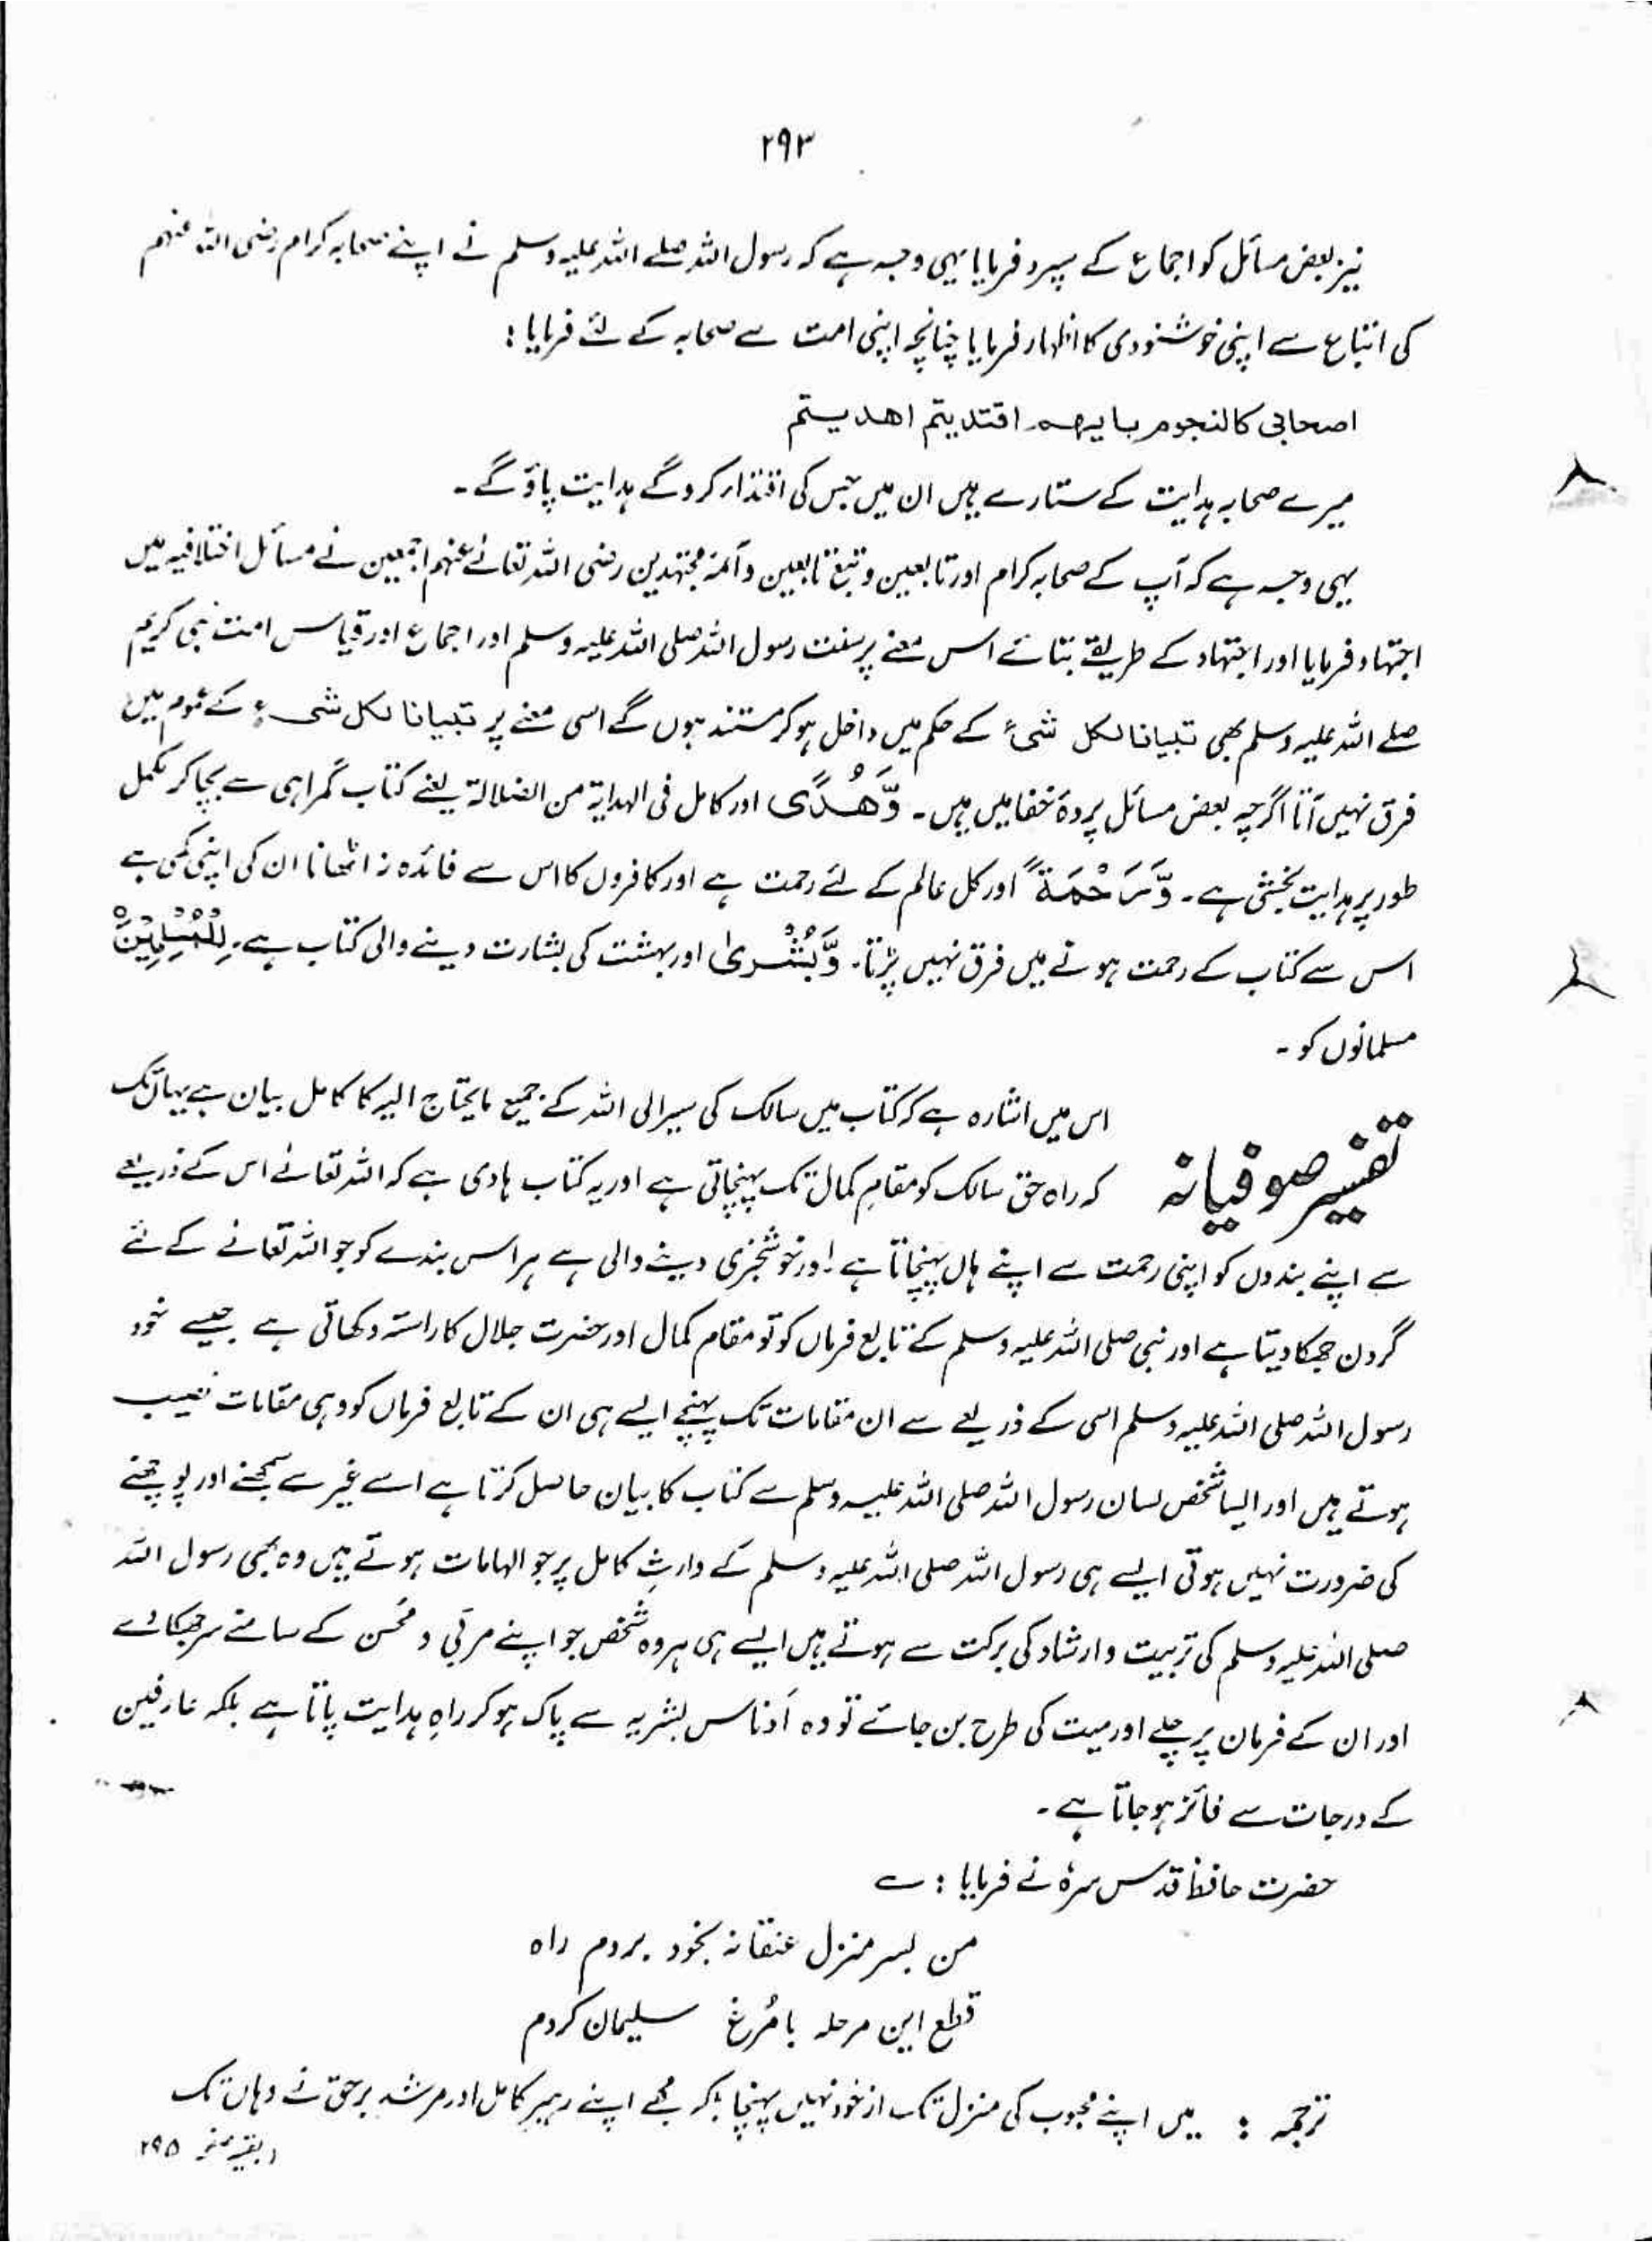 ۲۹۳
نیز بعض مسائل کو اجماع کے سپرد فرمایا یہی وجہ ہے کہ رسول اللہ صلے اللہ علیہ وسلم نے اپنے صحابہ کرام رضی اللہ عنہم
کی اتباع سے اپنی خوشنودی کا اظہار فرمایا چنانچہ اپنی امت سے صحابہ کے لئے فرمایا :
اصحابی کالنجوم بایہم اقتدیتم اھدیتم
میرے صحابہ ہدایت کے ستارے ہیں ان میں جس کی اقتدار کرو گے ہدایت پاؤ گے ۔
یہی وجہ ہے کہ آپ کے صحابہ کرام اور تابعین و تبع تابعین و آئمہ مجتہدین رضی اللہ تعالےٰ عنہم اجمعین نے مسائل اختلافیہ میں
اجتہاد فرمایا اور اجتہاد کے طریقے بتائے اس معنے پر سنت رسول اللہ صلی اللہ علیہ وسلم اور اجماع اور قیاس امت نبی کریم
صلے اللہ علیہ وسلم بھی تبیانا لکل شیٔ کے حکم میں داخل ہو کر مستند ہوں گے اسی معنے پر تبیانا لکل شیءٍ کے عموم میں
فرق نہیں آتا اگرچہ بعض مسائل پردۂ خفا میں ہیں ۔ وَّھُدًی اور کامل فی الہدایۃ من الضلالۃ یعنے کتاب گمراہی سے بچا کر مکمل
طور پر ہدایت بخشتی ہے ۔ وَّرَحْمَۃً اور کل عالم کے لئے رحمت ہے اور کافروں کا اس سے فائدہ نہ اٹھانا ان کی اپنی کمی ہے
اس سے کتاب کے رحمت ہونے میں فرق نہیں پڑتا ۔ وَّبُشْریٰ اور بہشت کی بشارت دینے والی کتاب ہے ۔ لِلْمُسْلِمِیْنَ
مسلمانوں کو ۔
تفسیر صوفیانہ اس میں اشارہ ہے کہ کتاب میں سالک کی سیر الی اللہ کے جمیع مایحتاج الیہ کا کامل بیان ہے یہاں تک
کہ راہ حق سالک کو مقامِ کمال تک پہنچاتی ہے اور یہ کتاب ہادی ہے کہ اللہ تعالےٰ اس کے ذریعے
سے اپنے بندوں کو اپنی رحمت سے اپنے ہاں پہنچاتا ہے اور خوشخبری دینے والی ہے ہر اس بندے کو جو اللہ تعالےٰ کے لئے
گردن جھکا دیتا ہے اور نبی صلی اللہ علیہ وسلم کے تابع فرماں کو تو مقام کمال اور حضرت جلال کا راستہ دکھاتی ہے جیسے خود
رسول اللہ صلی اللہ علیہ وسلم اسی کے ذریعے سے ان مقامات تک پہنچے ایسے ہی ان کے تابع فرماں کو وہی مقامات نصیب
ہوتے ہیں اور ایسا شخص لسان رسول اللہ صلی اللہ علیہ وسلم سے کتاب کا بیان حاصل کرتا ہے اسے غیر سے سمجھنے اور پوچھنے
کی ضرورت نہیں ہوتی ایسے ہی رسول اللہ صلی اللہ علیہ وسلم کے وارثِ کامل پر جو الہامات ہوتے ہیں وہ بھی رسول اللہ
صلی اللہ علیہ وسلم کی تربیت و ارشاد کی برکت سے ہوتے ہیں ایسے ہی ہر وہ شخص جو اپنے مربّی و مُحسن کے سامنے سر جھکا دے
اور ان کے فرمان پر چلے اور میت کی طرح بن جائے تو وہ اَدناس بشریہ سے پاک ہو کر راہِ ہدایت پاتا ہے بلکہ عارفین
کے درجات سے فائز ہو جاتا ہے ۔
حضرت حافظ قدس سرہٗ نے فرمایا : ؎
من بسر منزل عنقا نہ بخود بردم راہ
قطع این مرحلہ با مُرغ سلیمان کردم
ترجمہ : میں اپنے محبوب کی منزل تک از خود نہیں پہنچا بلکہ مجھے اپنے رہبر کامل اور مرشد برحق نے وہاں تک
( بقیہ صفحہ ۲۹۵